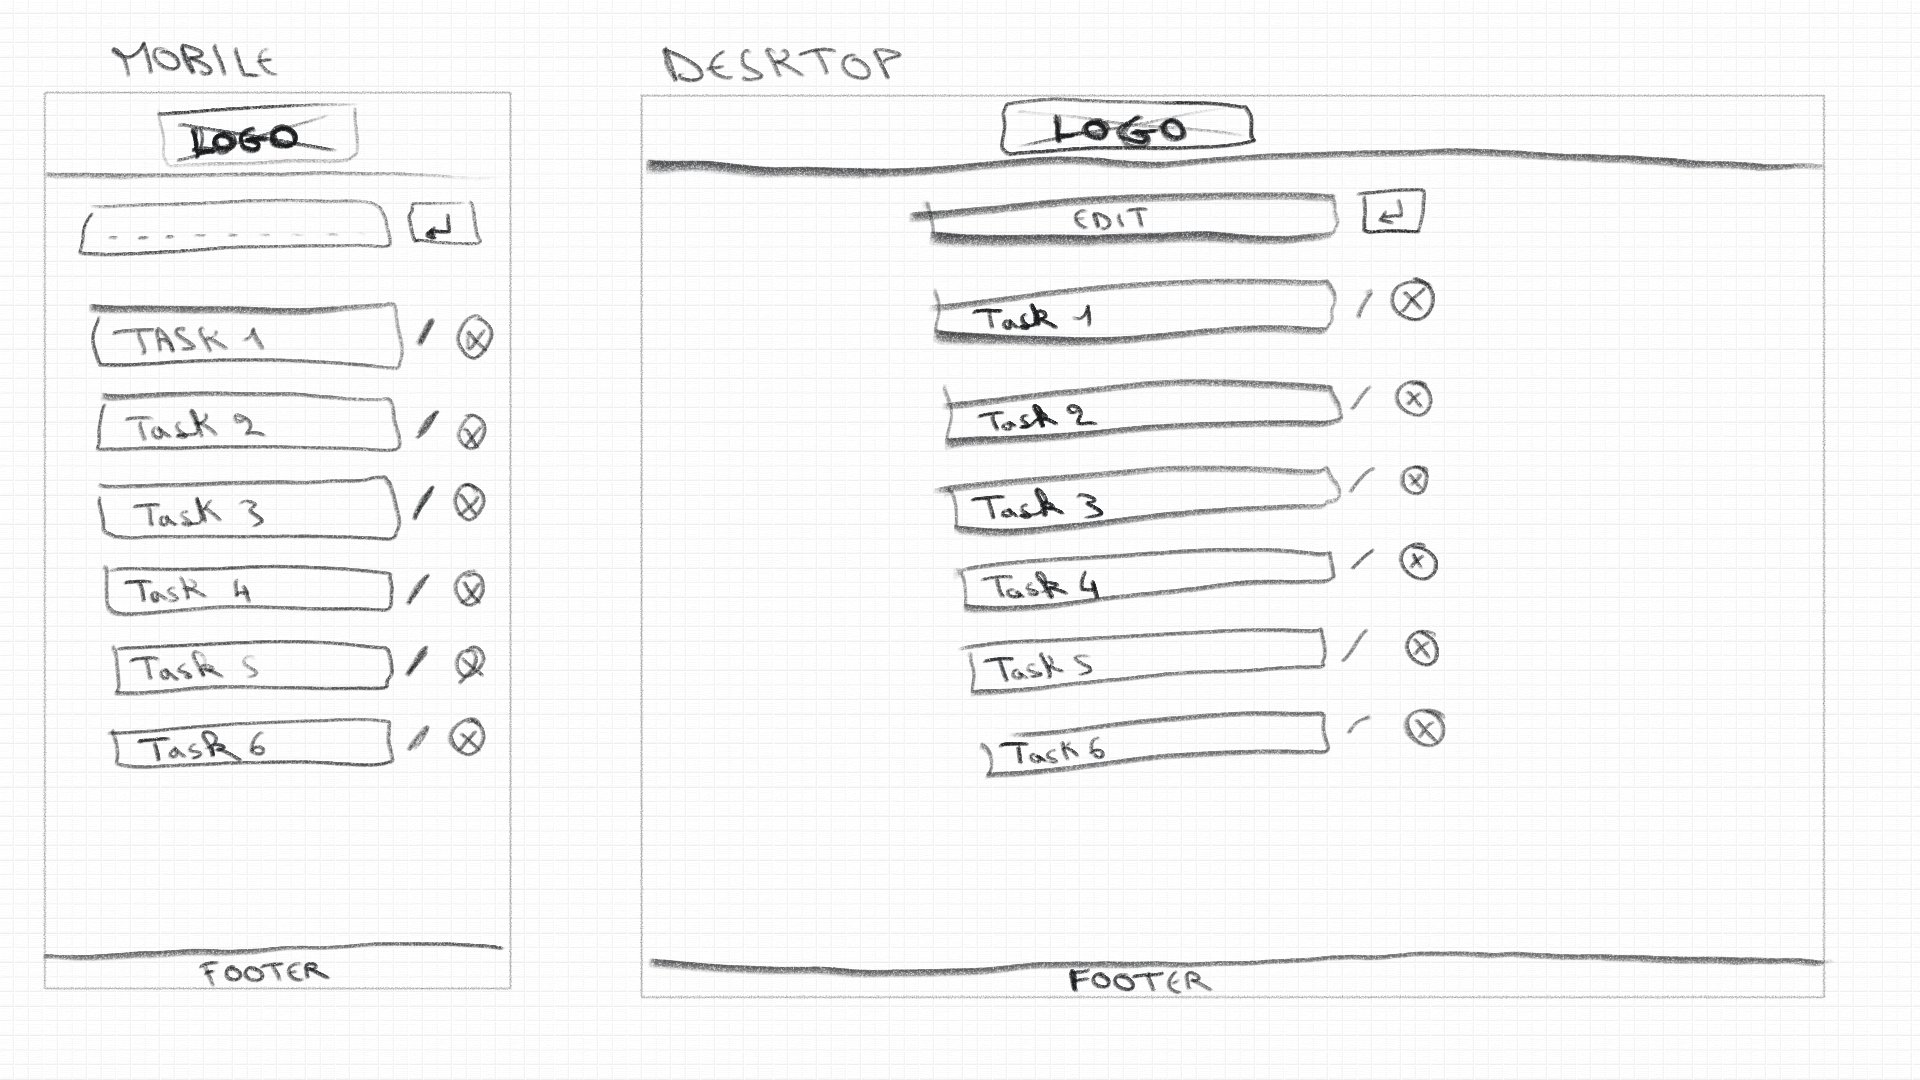 MOBILE
LOGO
TASK 1
Task 2
Task 3
Task 4
Task 5
Task 6
FOOTER
DESKTOP
LOGO
EDIT
Task 1
Task 2
Task 3
Task 4
Task 5
Task 6
FOOTER